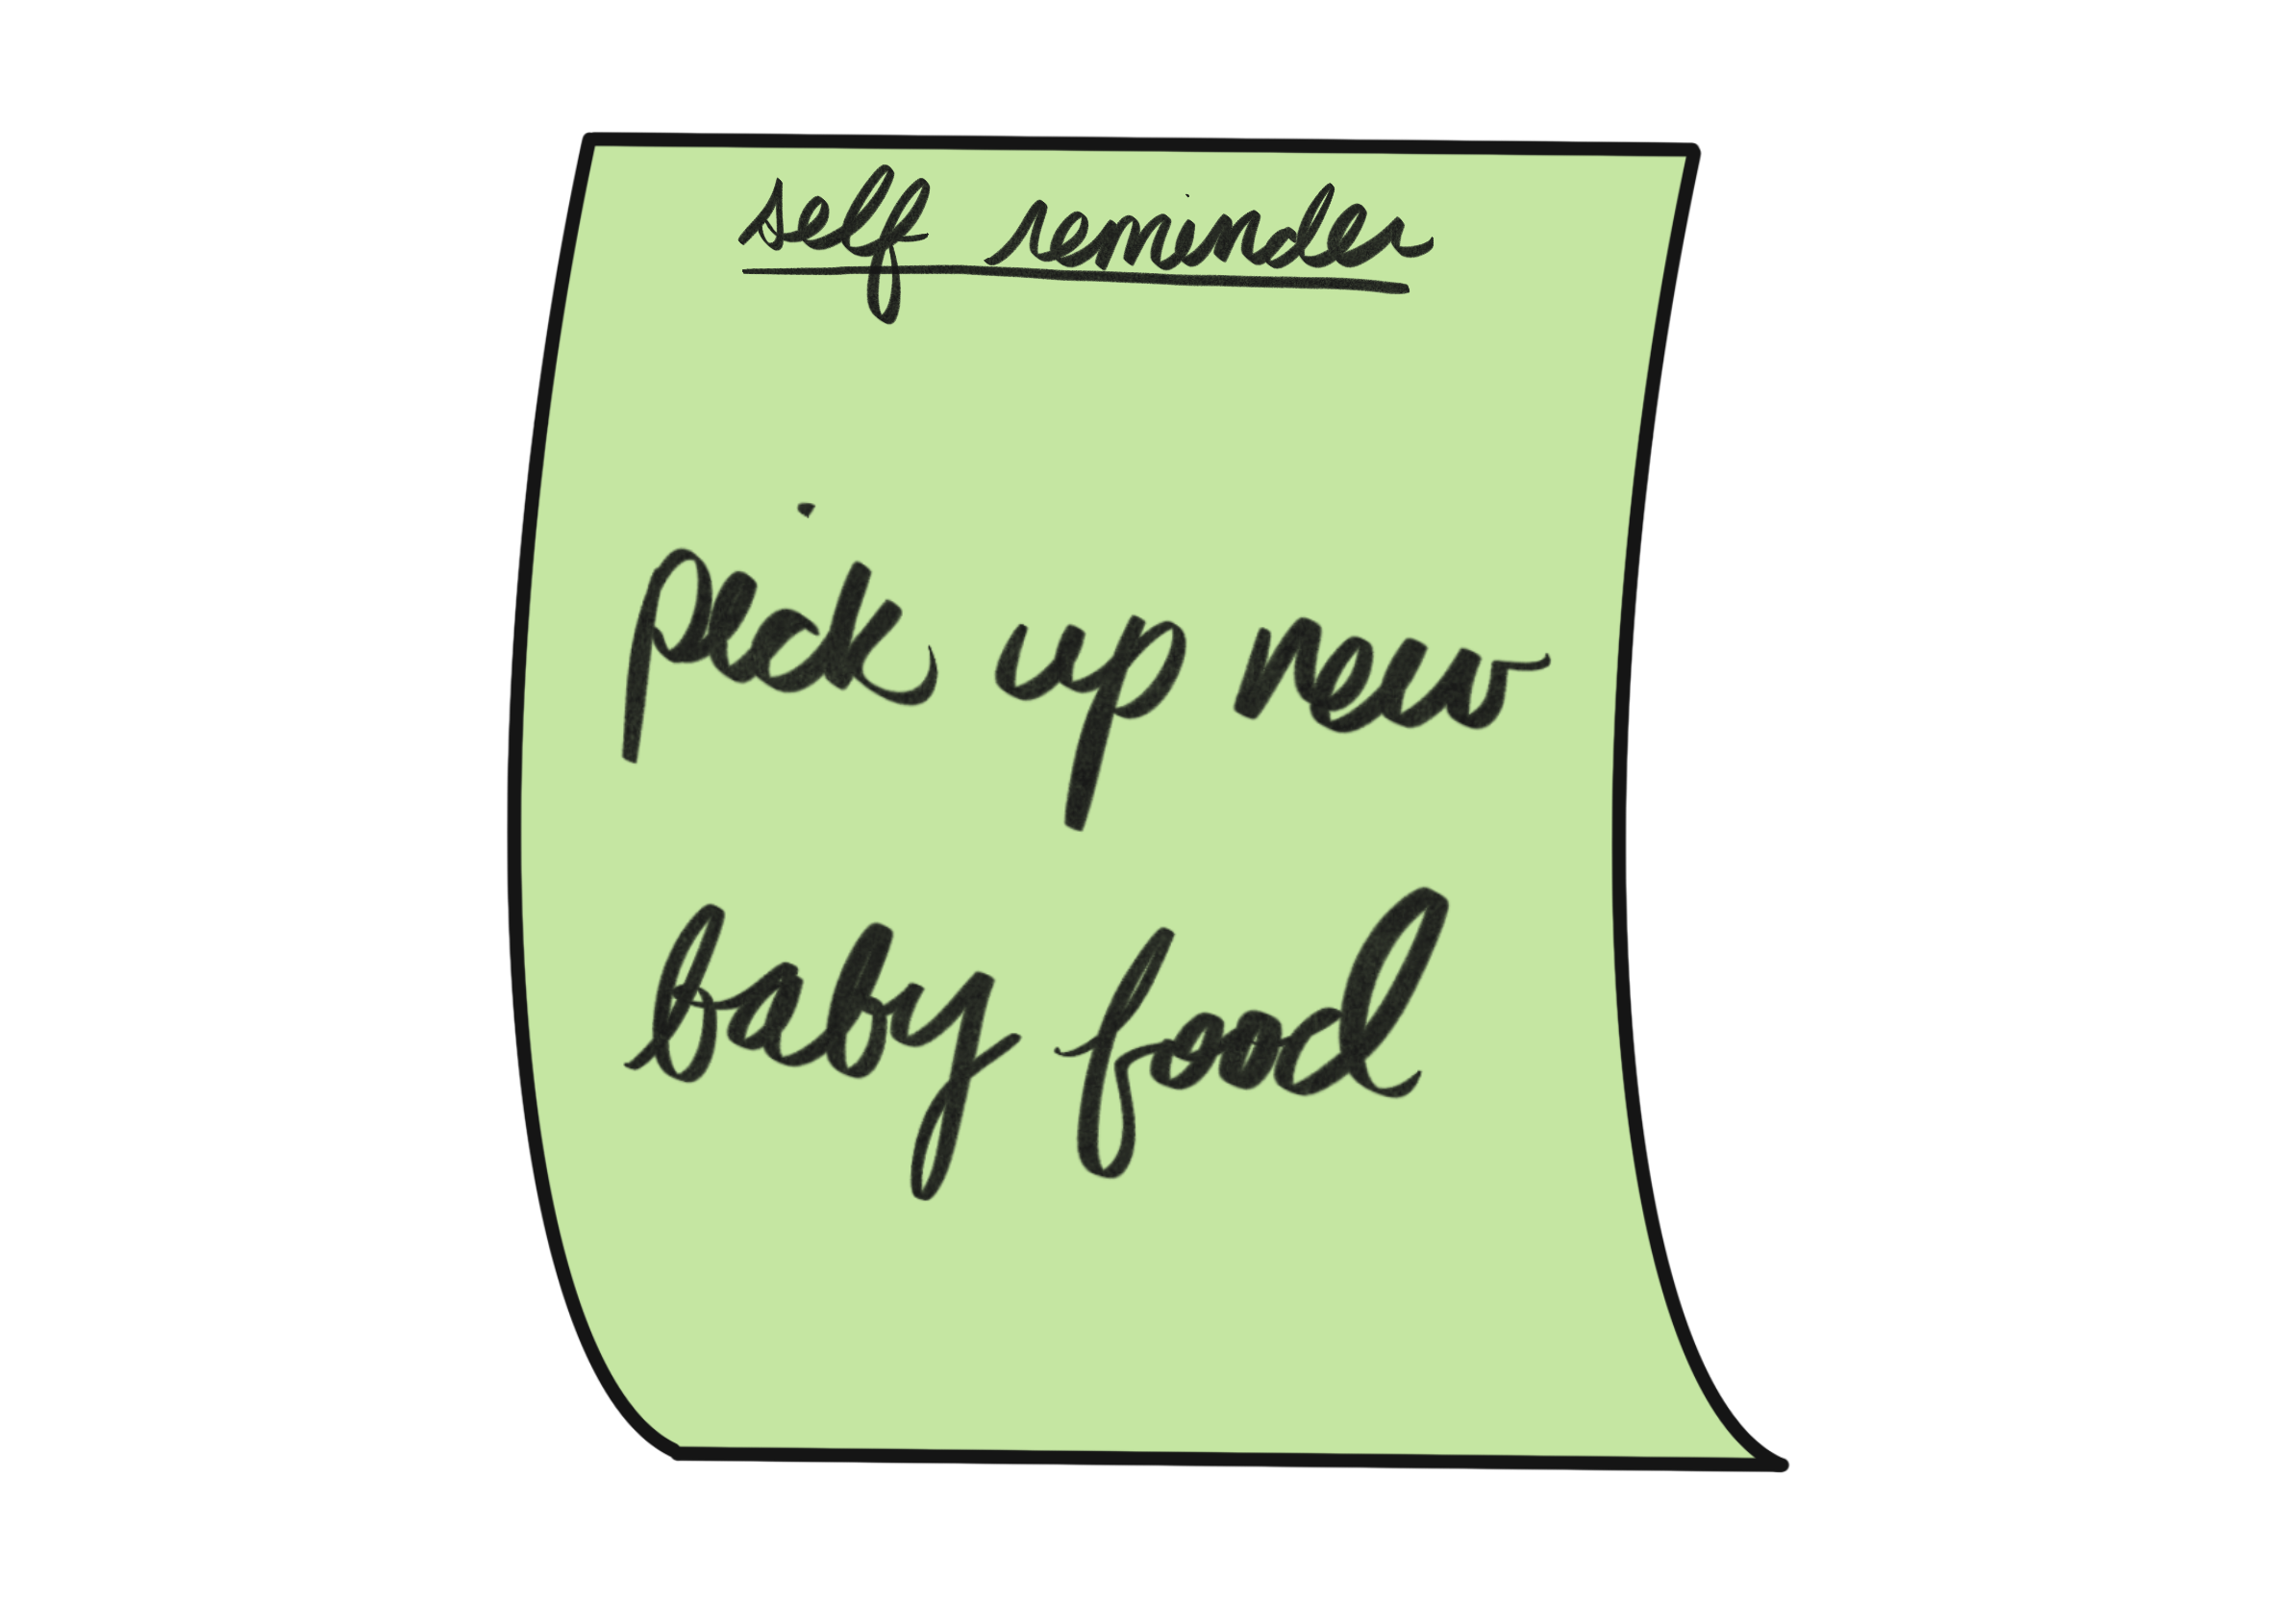 self reminder
pick up new
baby food